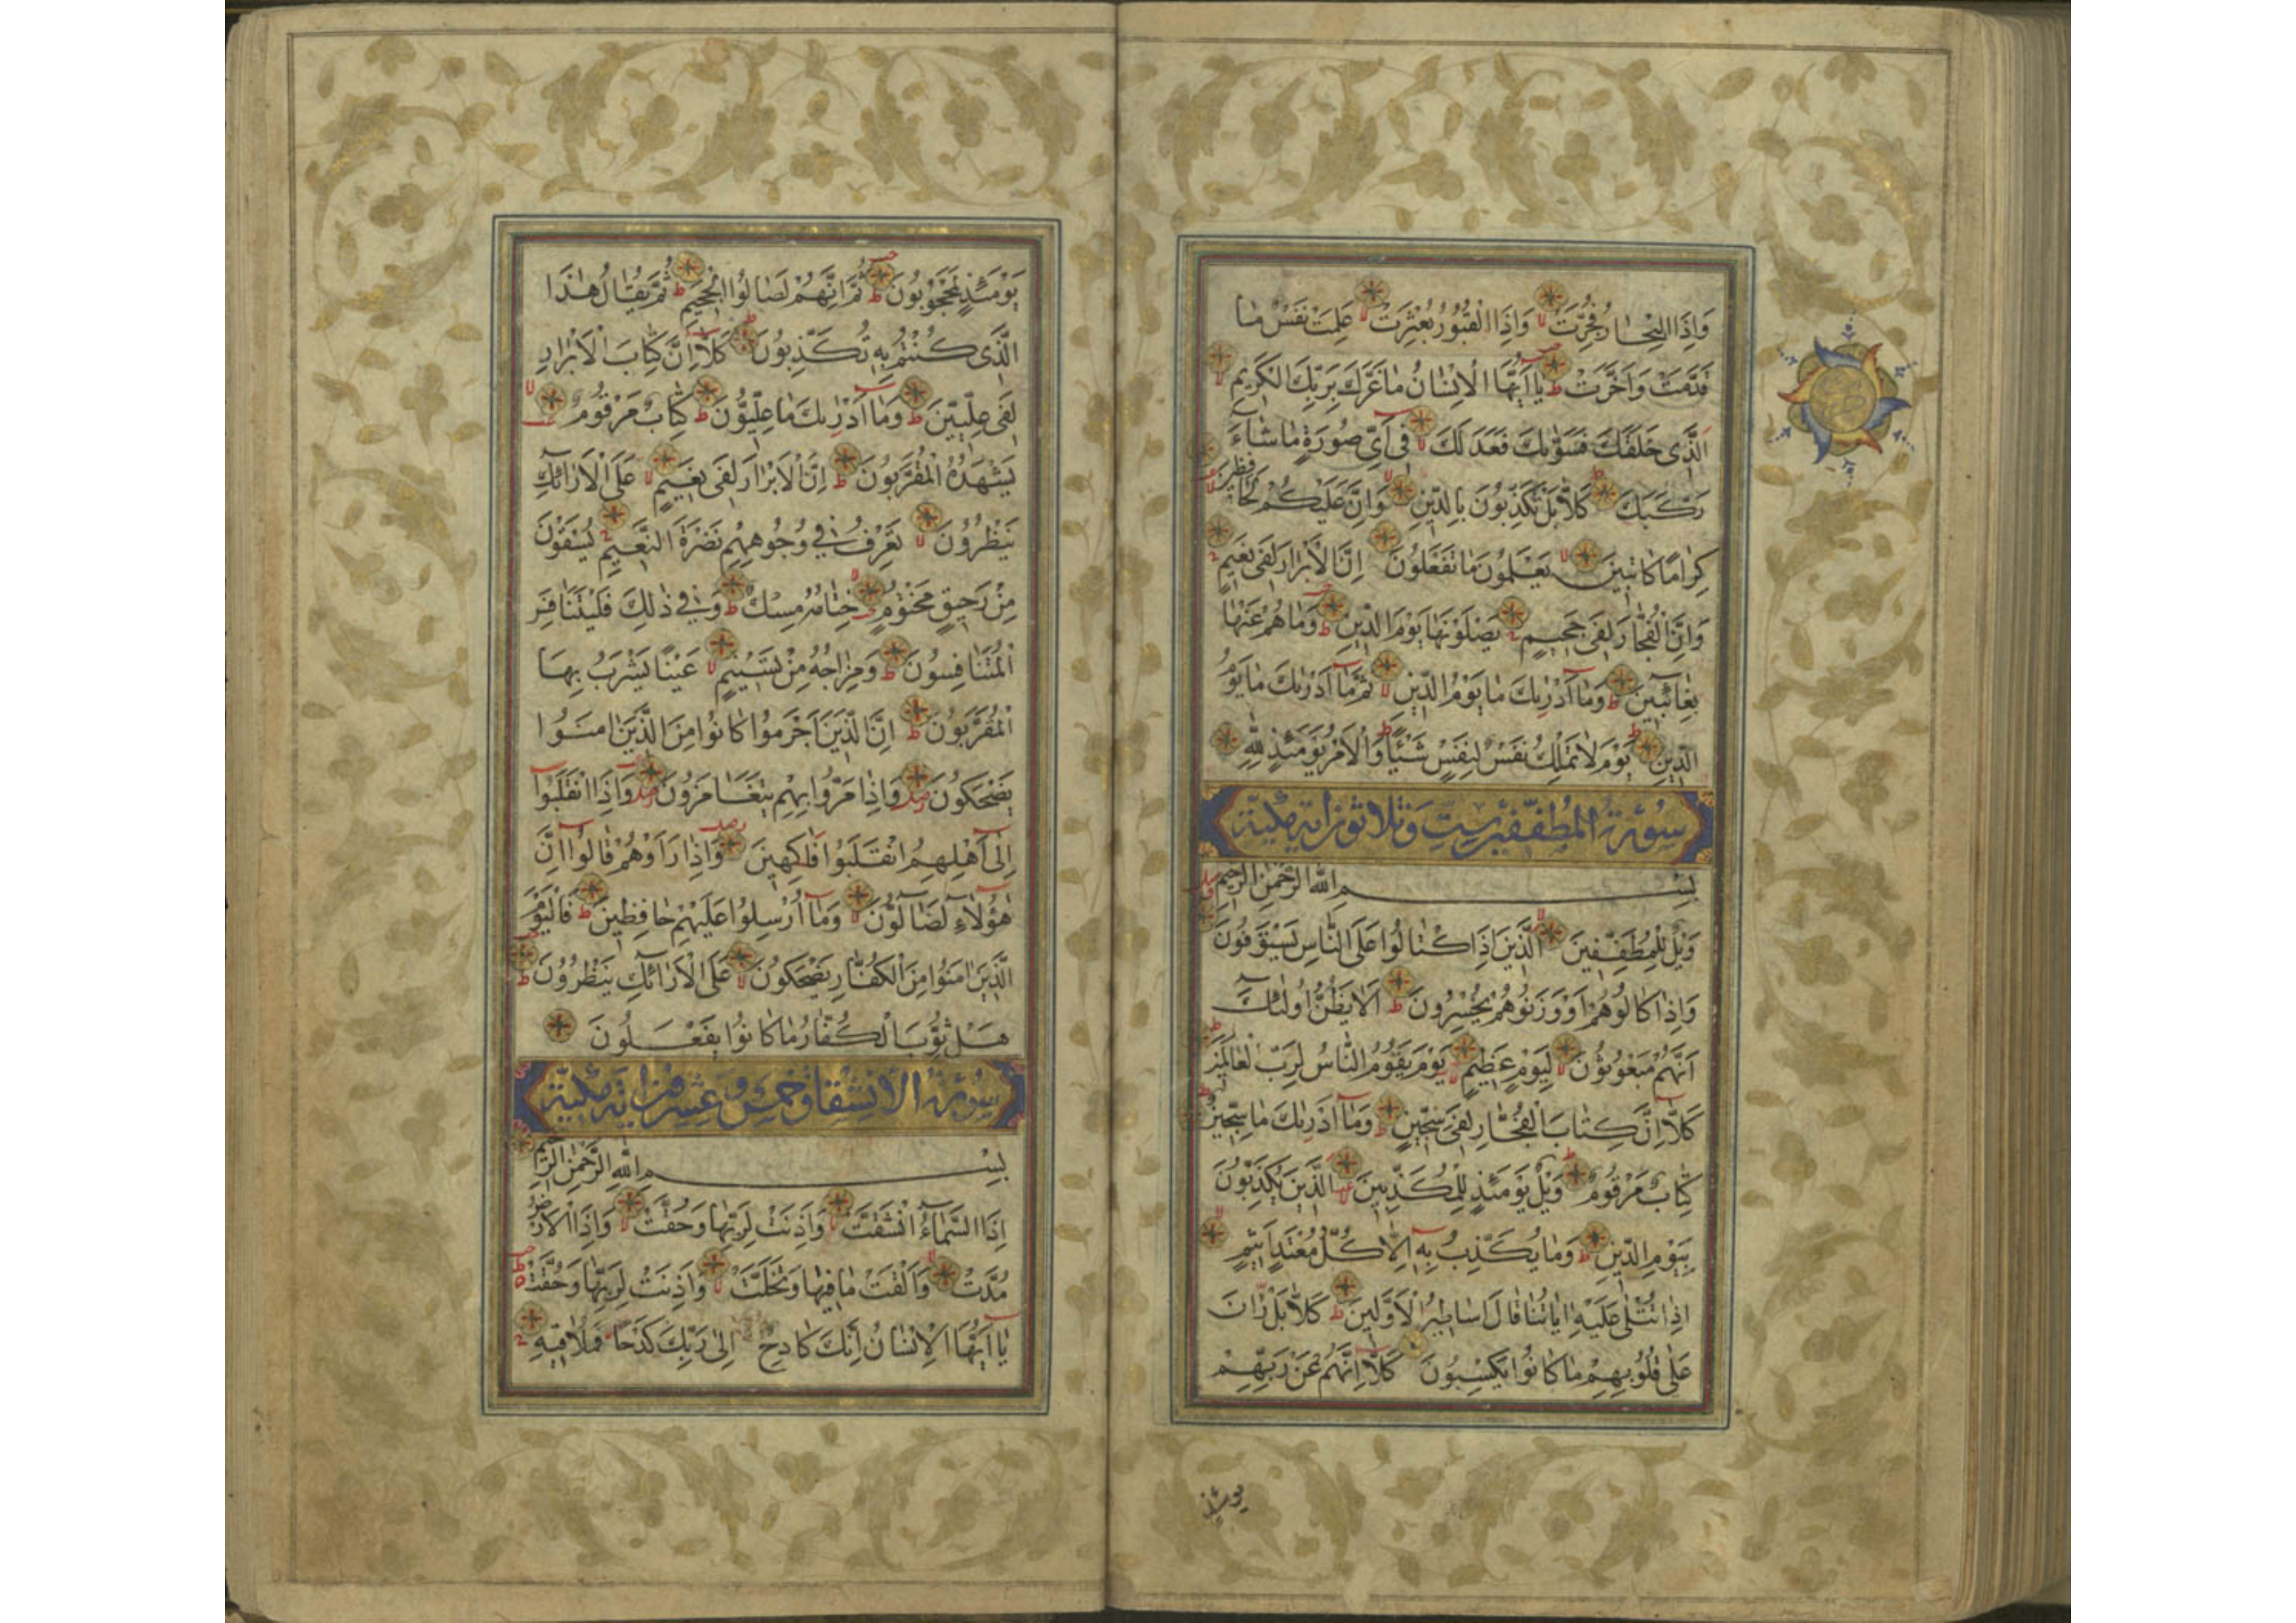 وَاِذَا الْبِحَارُ فُجِّرَتْ وَاِذَا الْقُبُورُ بُعْثِرَتْ عَلِمَتْ نَفْسٌ مَا
قَدَّمَتْ وَاَخَّرَتْ يَا اَيُّهَا الْاِنْسَانُ مَا غَرَّكَ بِرَبِّكَ الْكَرِيمِ
اَلَّذِى خَلَقَكَ فَسَوّٰيكَ فَعَدَلَكَ فِى اَىِّ صُورَةٍ مَا شَاءَ
رَكَّبَكَ كَلَّا بَلْ تُكَذِّبُونَ بِالدِّينِ وَاِنَّ عَلَيْكُمْ لَحَافِظِينَ
كِرَامًا كَاتِبِينَ يَعْلَمُونَ مَا تَفْعَلُونَ اِنَّ الْاَبْرَارَ لَفِى نَعِيمٍ
وَاِنَّ الْفُجَّارَ لَفِى جَحِيمٍ يَصْلَوْنَهَا يَوْمَ الدِّينِ وَمَا هُمْ عَنْهَا
بِغَائِبِينَ وَمَا اَدْرٰيكَ مَا يَوْمُ الدِّينِ ثُمَّ مَا اَدْرٰيكَ مَا يَوْمُ
الدِّينِ يَوْمَ لَا تَمْلِكُ نَفْسٌ لِنَفْسٍ شَيْئًا وَالْاَمْرُ يَوْمَئِذٍ لِلّٰهِ
سورة المطففين ست وثلاثون اية مكية
بِسْمِ اللّٰهِ الرَّحْمٰنِ الرَّحِيمِ
وَيْلٌ لِلْمُطَفِّفِينَ اَلَّذِينَ اِذَا اكْتَالُوا عَلَى النَّاسِ يَسْتَوْفُونَ
وَاِذَا كَالُوهُمْ اَوْ وَزَنُوهُمْ يُخْسِرُونَ اَلَا يَظُنُّ اُولٰئِكَ
اَنَّهُمْ مَبْعُوثُونَ لِيَوْمٍ عَظِيمٍ يَوْمَ يَقُومُ النَّاسُ لِرَبِّ الْعَالَمِينَ
كَلَّا اِنَّ كِتَابَ الْفُجَّارِ لَفِى سِجِّينٍ وَمَا اَدْرٰيكَ مَا سِجِّينٌ
كِتَابٌ مَرْقُومٌ وَيْلٌ يَوْمَئِذٍ لِلْمُكَذِّبِينَ اَلَّذِينَ يُكَذِّبُونَ
بِيَوْمِ الدِّينِ وَمَا يُكَذِّبُ بِهِ اِلَّا كُلُّ مُعْتَدٍ اَثِيمٍ
اِذَا تُتْلٰى عَلَيْهِ اٰيَاتُنَا قَالَ اَسَاطِيرُ الْاَوَّلِينَ كَلَّا بَلْ رَانَ
عَلٰى قُلُوبِهِمْ مَا كَانُوا يَكْسِبُونَ كَلَّا اِنَّهُمْ عَنْ رَبِّهِمْ
يومئذ
يَوْمَئِذٍ لَمَحْجُوبُونَ ثُمَّ اِنَّهُمْ لَصَالُوا الْجَحِيمِ ثُمَّ يُقَالُ هٰذَا
الَّذِى كُنْتُمْ بِهِ تُكَذِّبُونَ كَلَّا اِنَّ كِتَابَ الْاَبْرَارِ
لَفِى عِلِّيِّينَ وَمَا اَدْرٰيكَ مَا عِلِّيُّونَ كِتَابٌ مَرْقُومٌ
يَشْهَدُهُ الْمُقَرَّبُونَ اِنَّ الْاَبْرَارَ لَفِى نَعِيمٍ عَلَى الْاَرَائِكِ
يَنْظُرُونَ تَعْرِفُ فِى وُجُوهِهِمْ نَضْرَةَ النَّعِيمِ يُسْقَوْنَ
مِنْ رَحِيقٍ مَخْتُومٍ خِتَامُهُ مِسْكٌ وَفِى ذٰلِكَ فَلْيَتَنَافَسِ
الْمُتَنَافِسُونَ وَمِزَاجُهُ مِنْ تَسْنِيمٍ عَيْنًا يَشْرَبُ بِهَا
الْمُقَرَّبُونَ اِنَّ الَّذِينَ اَجْرَمُوا كَانُوا مِنَ الَّذِينَ اٰمَنُوا
يَضْحَكُونَ وَاِذَا مَرُّوا بِهِمْ يَتَغَامَزُونَ وَاِذَا انْقَلَبُوا
اِلٰى اَهْلِهِمُ انْقَلَبُوا فَاكِهِينَ وَاِذَا رَاَوْهُمْ قَالُوا اِنَّ
هٰؤُلَاءِ لَضَالُّونَ وَمَا اُرْسِلُوا عَلَيْهِمْ حَافِظِينَ فَالْيَوْمَ
الَّذِينَ اٰمَنُوا مِنَ الْكُفَّارِ يَضْحَكُونَ عَلَى الْاَرَائِكِ يَنْظُرُونَ
هَلْ ثُوِّبَ الْكُفَّارُ مَا كَانُوا يَفْعَلُونَ
سورة الانشقاق خمس وعشرون اية مكية
بِسْمِ اللّٰهِ الرَّحْمٰنِ الرَّحِيمِ
اِذَا السَّمَاءُ انْشَقَّتْ وَاَذِنَتْ لِرَبِّهَا وَحُقَّتْ وَاِذَا الْاَرْضُ
مُدَّتْ وَاَلْقَتْ مَا فِيهَا وَتَخَلَّتْ وَاَذِنَتْ لِرَبِّهَا وَحُقَّتْ
يَا اَيُّهَا الْاِنْسَانُ اِنَّكَ كَادِحٌ اِلٰى رَبِّكَ كَدْحًا فَمُلَاقِيهِ